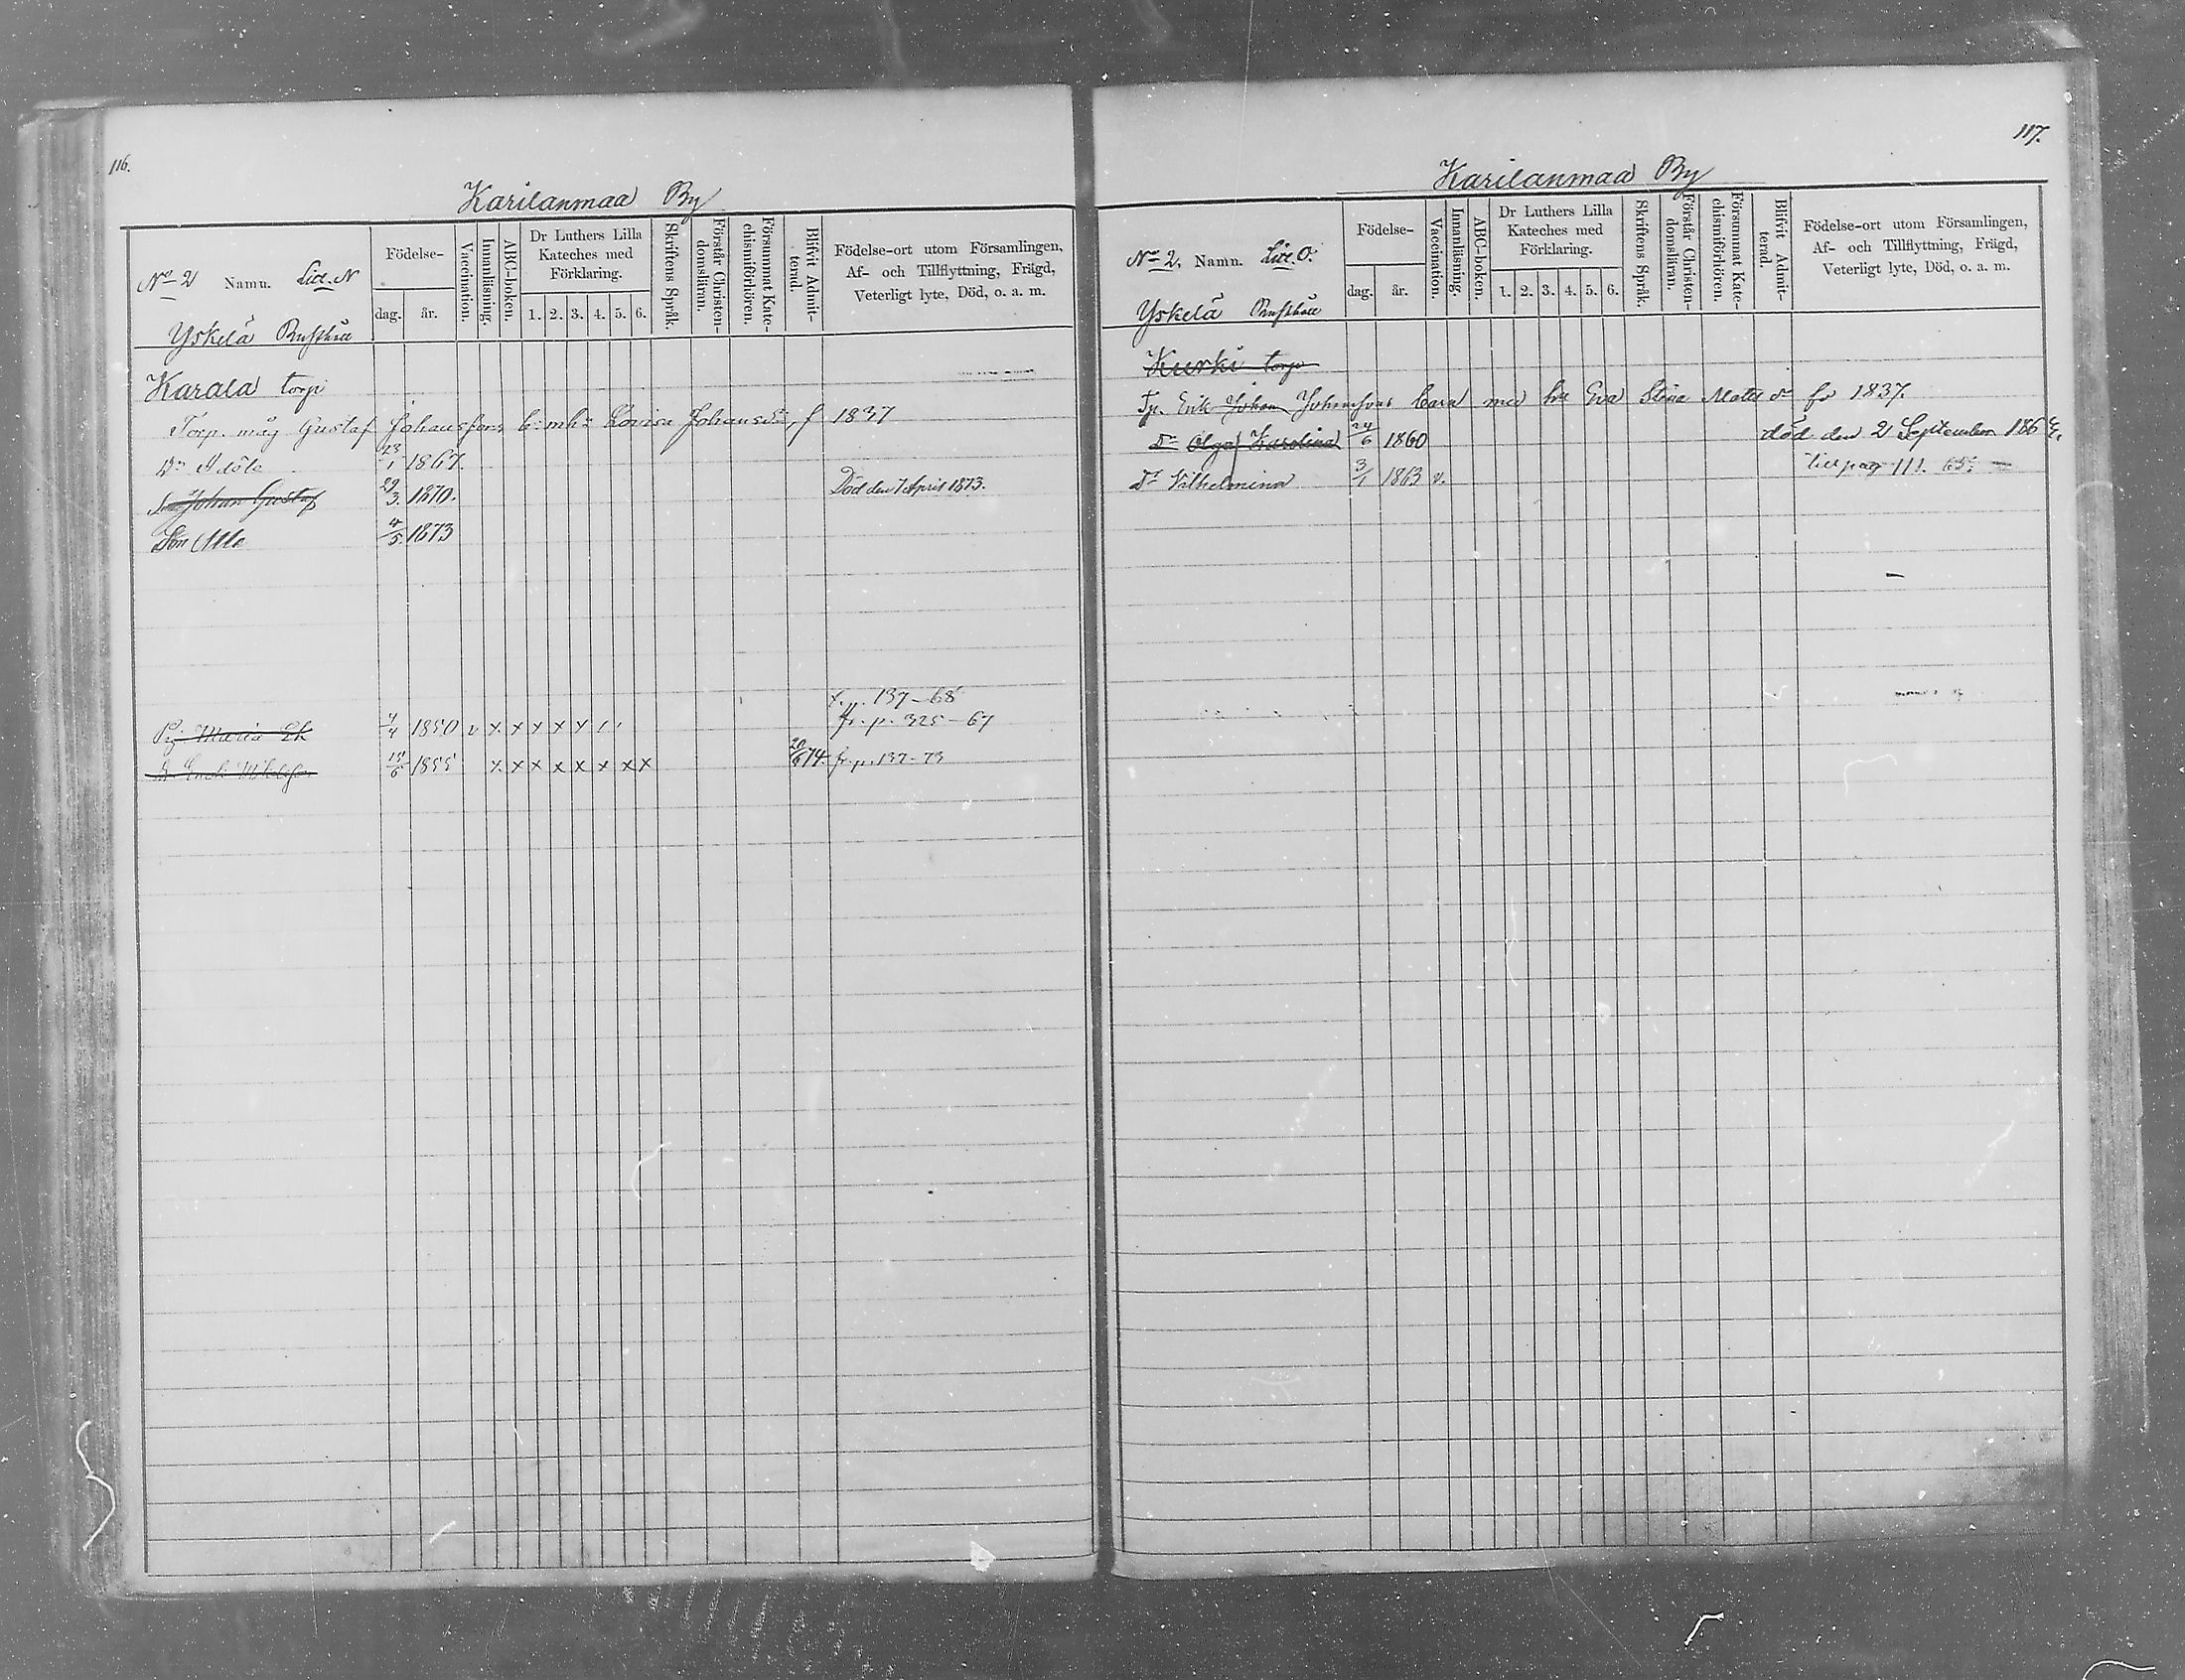 116.
Karilanmaa By
No 2 Namn. Litt. N
Födelse-
dag. år.
Vaccination.
Innanläsning.
ABC-boken.
Dr Luthers Lilla Kateches med Förklaring.
1. 2. 3. 4. 5. 6.
Skriftens Språk.
Förstår Christen-domsläran.
Försummat Kate-chismiförhören.
Blifvit Admit-terad.
Födelse-ort utom Församlingen,
Af- och Tillflyttning, Frägd,
Veterligt lyte, Död, o. a. m.
Yskelä Rusthåll
Karala torp
Torp. måg Gustaf Johanssons b. m. h. Lovisa Johansdr, f 1837
Dr Adele 23/1 1867.
S. Johan Gustaf 29/3. 1870. Död den 7 April 1873.
Son 4/5. 1873
f. p. 137-68
Pig. Maria Ek 4/4 1850 v x x x x x / / fr. p. 325-67
15/6 1855 x x x x x x x x 20/6 74. fr. p. 137-73
117.
Karilanmaa By
No 2. Namn. Litt. O.
Födelse-
dag. år.
Vaccination.
Innanläsning.
ABC-boken.
Dr Luthers Lilla Kateches med Förklaring.
1. 2. 3. 4. 5. 6.
Skriftens Språk.
Förstår Christen-domsläran.
Försummat Kate-chismiförhören.
Blifvit Admit-terad.
Födelse-ort utom Församlingen,
Af- och Tillflyttning, Frägd,
Veterligt lyte, Död, o. a. m.
Yskelä Rusthåll
Kurki torp
Tp. Erik Johan Johanssons barn med h. Eva Stina Matts dr f. 1837.
Dr Olga Karolina 24/6 1860 död den 2 September 186
till pag 111. 65.
Dr Vilhelmina 3/1 1863 v.